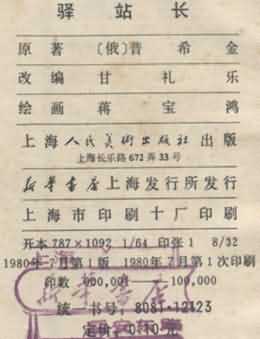 驿站长
原著〔俄〕普希金
改编 甘礼乐
绘画 蒋宝鸿
上海人民美術出版社出版
上海长乐路672弄33号
新华書店上海发行所发行
上海市印刷十厂印刷
开本787×1092 1/64 印张1 8/32
1980年7月第1版 1980年7月第1次印刷
印数 000,001—100,000
统一书号：8081·12123
定价：0.10元